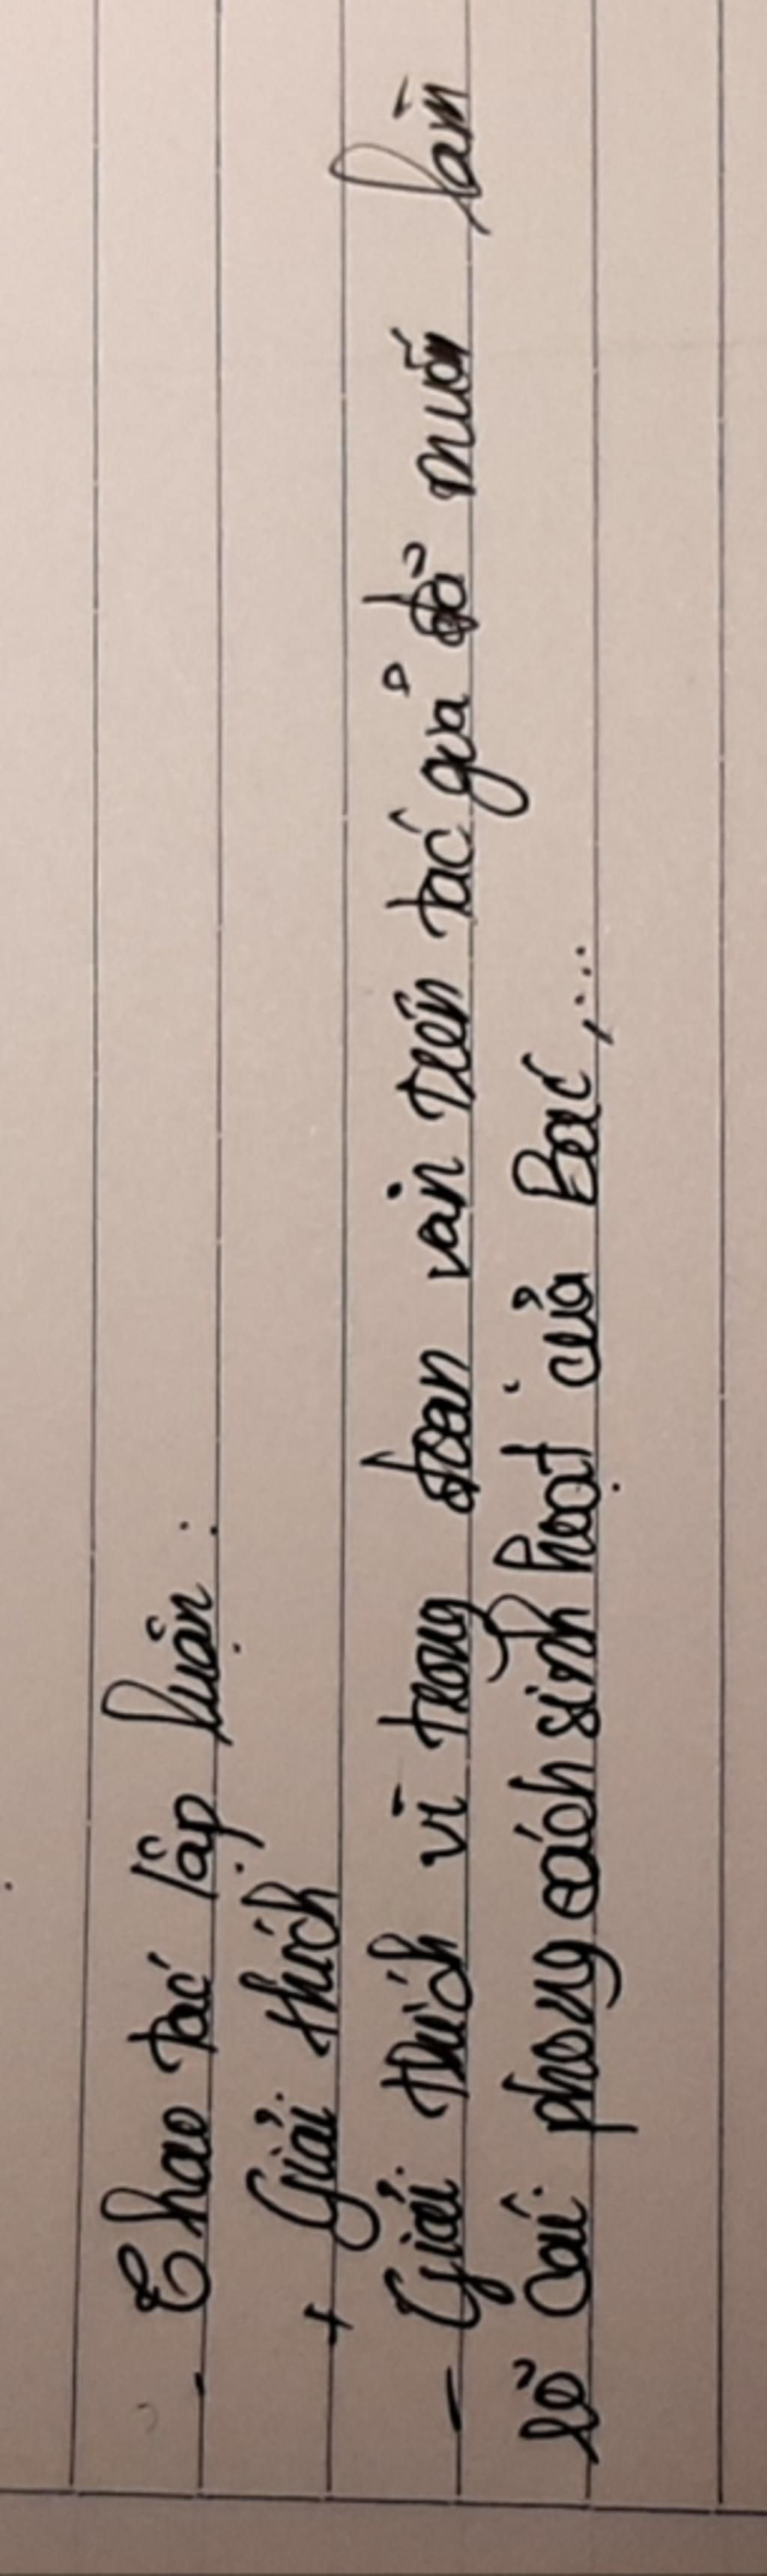 - Thao tác lập luận:
+ Giải thích
- Giải thích vì trong đoạn văn trên tác giả đã muốn làm
rõ cái phong cách sinh hoạt của Bác,...